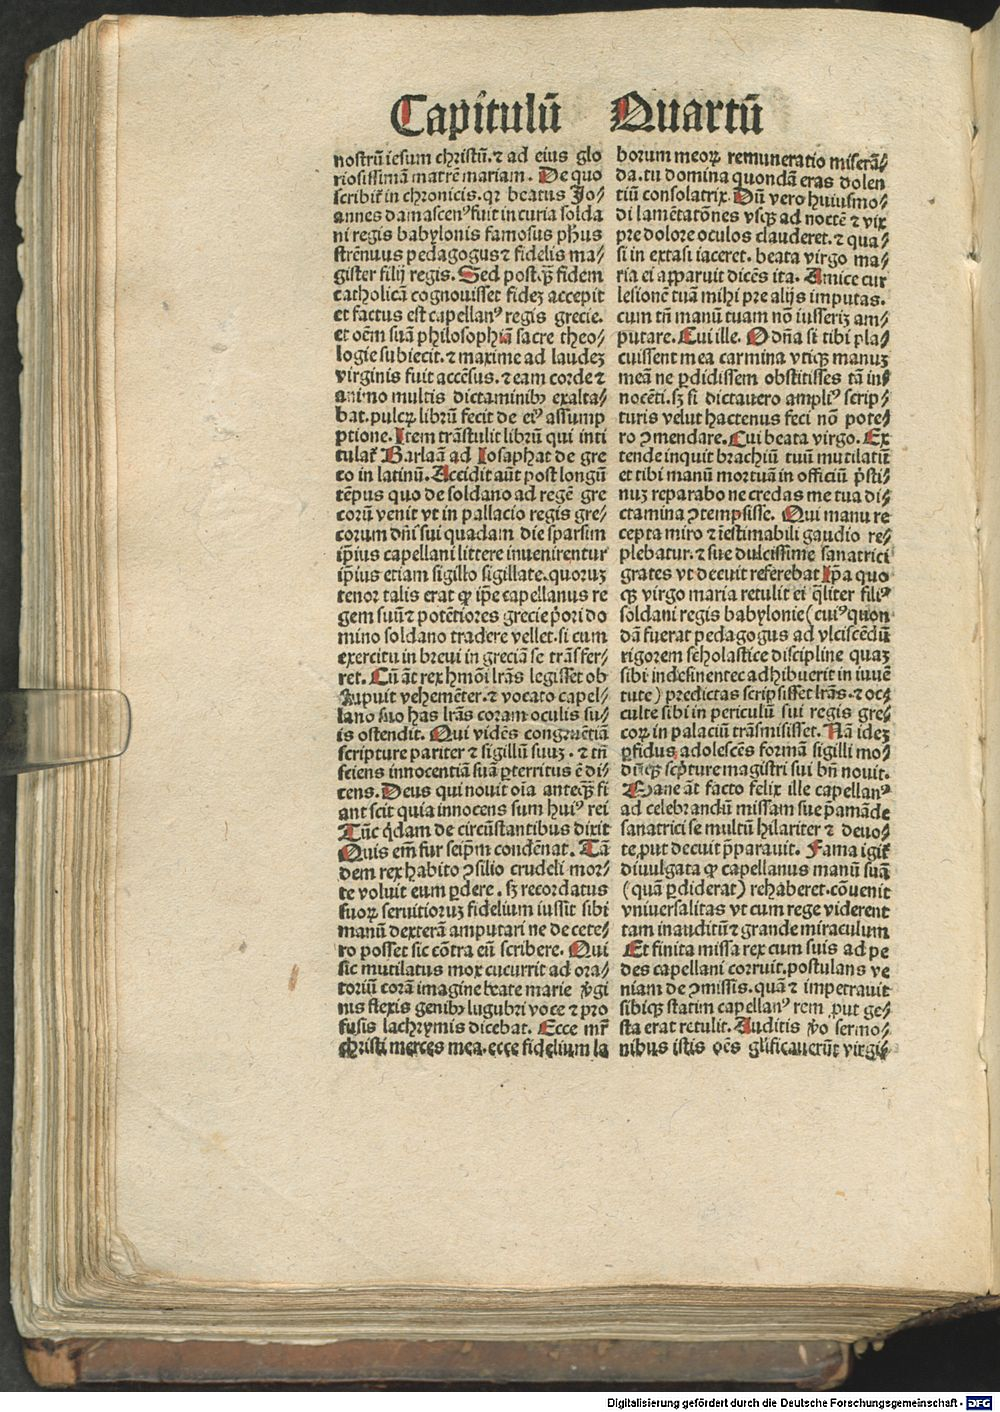 Capitulū Quartū
nostrū iesum christū. ⁊ ad eius glo
riosissimā matrē mariam. De quo
scribit̃ in chronicis. qꝛ beatus Jo⸗
annes damascenꝰ fuit in curia solda
ni regis babylonis famosus ph̃us
strēnuus pedagogus ⁊ fidelis ma⸗
gister filij regis. Sed postq̄ꝫ fidem
catholicā cognouisset fideꝫ accepit
et factus est capellanꝰ regis grecie.
et oēm suā philosophiā sacre theo⸗
logie subiecit. ⁊ maxime ad laudeꝫ
virginis fuit accēsus. ⁊ eam corde ⁊
animo multis dictaminibꝰ exalta⸗
bat. pulcꝝ librū fecit de eiꝰ assump
ptione. Item trāstulit librū qui inti
tulat̃ Barlaā ad Josaphat de gre
co in latinū. Accidit aūt post longū
tēpus quo de soldano ad regē gre
corū venit vt in pallacio regis gre⸗
corum dn̄i sui quadam die sparsim
ip̄ius capellani littere inuenirentur
ip̄ius etiam sigillo sigillate. quoruꝫ
tenor talis erat ꝙ ip̄e capellanus re
gem suū ⁊ potētiores grecie p̄ori do
mino soldano tradere vellet. si cum
exercitu in breui in greciā se trāsfer⸗
ret. Cū āt rex hmōi lr̄as legisset ob
stupuit vehemēter. ⁊ vocato capel⸗
lano suo has lr̄as coram oculis su⸗
is ostendit. Qui vidēs congruētiā
scripture pariter ⁊ sigillū suuꝫ. ⁊ tn̄
sciens innocentiā suā ꝑterritus ē di⸗
cens. Deus qui nouit oīa anteq̄ꝫ fi
ant scit quia innocens sum huiꝰ rei
Tūc q̇dam de circūstantibus dixit
Quis em̄ fur seip̄m condēnat. Tā
dem rex habito ꝯsilio crudeli mor⸗
te voluit eum ꝑdere. sꝫ recordatus
suoꝝ seruitioruꝫ fidelium iussit sibi
manū dexterā amputari ne de cete⸗
ro posset sic cōtra eū scribere. Qui
sic mutilatus mox cucurrit ad ora⸗
toriū corā imagine beate marie ꝟgi
nis flexis genibꝰ lugubri voce ⁊ pro
fusis lachrymis dicebat. Ecce mr̄
christi merces mea. ecce fidelium la
borum meoꝝ remuneratio miserā⸗
da. tu domina quondā eras dolen
tiū consolatrix. Dū vero huiusmo⸗
di lamētatōnes vsqꝫ ad noctē ⁊ vix
pre dolore oculos clauderet. ⁊ qua⸗
si in extasi iaceret. beata virgo ma⸗
ria ei apparuit dicēs ita. Amice cur
lesionē tuā mihi pre alijs imputas.
cum tn̄ manū tuam nō iusseriꝫ am⸗
putare. Cui ille. O dn̄a si tibi pla⸗
cuissent mea carmina vtiqꝫ manuꝫ
meā ne ꝑdidissem obstitisses tā in⸗
nocēti. sꝫ si dictauero ampliꝰ scrip⸗
turis velut hactenus feci nō pote⸗
ro ꝯmendare. Cui beata virgo. Ex
tende inquit brachiū tuū mutilatū
et tibi manū mortuā in officiū p̄sti⸗
nuꝫ reparabo ne credas me tua di⸗
ctamina ꝯtempsisse. Qui manu re
cepta miro ⁊ īestimabili gaudio re⸗
plebatur. ⁊ sue dulcissime sanatrici
grates vt decuit referebat Ip̄a quo
qꝫ virgo maria retulit ei q̄liter filiꝰ
soldani regis babylonie (cuiꝰ quon
dā fuerat pedagogus ad vlciscēdū
rigorem scholastice discipline quaꝫ
sibi indesinentec adhibuerit in iuuē
tute) predictas scripsisset lr̄as. ⁊ oc⸗
culte sibi in periculū sui regis gre⸗
coꝝ in palaciū trāsmisisset. Nā ideꝫ
ꝑfidus adolescēs formā sigilli mo⸗
dūqꝫ scp̄ture magistri sui bn̄ nouit.
Mane āt facto felix ille capellanꝰ
ad celebrandū missam sue p̄amāde
sanatrici se multū hilariter ⁊ deuo⸗
te, ꝓut decuit p̄parauit. Fama igit̃
diuulgata ꝙ capellanus manū suā
(quā ꝑdiderat) rehaberet. cōuenit
vniuersalitas vt cum rege viderent
tam inauditū ⁊ grande miraculum
Et finita missa rex cum suis ad pe
des capellani corruit. postulans ve
niam de ꝯmissis. quā ⁊ impetrauit
sibiqꝫ statim capellanꝰ rem ꝓut ge⸗
sta erat retulit. Auditis ꝟo sermo⸗
nibus istis oēs gl̄ificauerūt virgi⸗
Digitalisierung gefördert durch die Deutsche Forschungsgemeinschaft - DFG